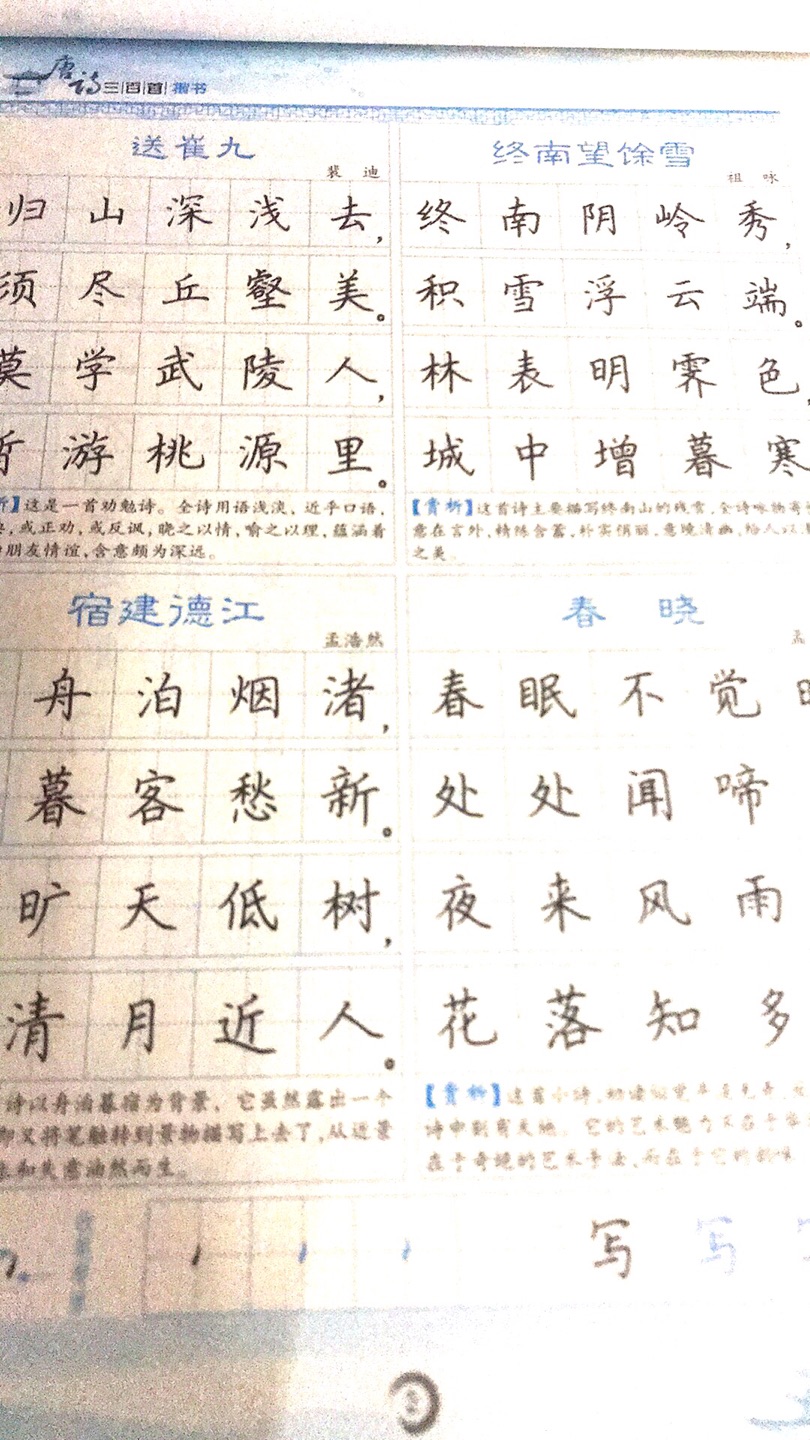 唐诗三百首 楷书
送崔九
裴迪
归山深浅去，
须尽丘壑美。
莫学武陵人，
游桃源里。
析】这是一首劝勉诗。全诗用语浅淡，近乎口语，
，或正劝，或反讽，晓之以情，喻之以理，蕴涵着
朋友情谊，含意颇为深远。
终南望馀雪
祖咏
终南阴岭秀，
积雪浮云端。
林表明霁色，
城中增暮寒
【赏析】这首诗主要描写终南山的残雪，全诗咏物寄
意在言外，精练含蓄，朴实俏丽，意境清幽，给人以
之美。
宿建德江
孟浩然
舟泊烟渚，
暮客愁新。
旷天低树，
清月近人。
诗以舟泊暮宿为背景，它虽然露出一个
即又将笔触转到景物描写上去了，从近景
和失意油然而生。
春晓
孟
春眠不觉
处处闻啼
夜来风雨
花落知多
【赏析】这首小诗，初读似觉平淡无奇，
诗中别有天地。它的艺术魅力不在于华
在于奇绝的艺术手法，而在于它的韵味
写 写